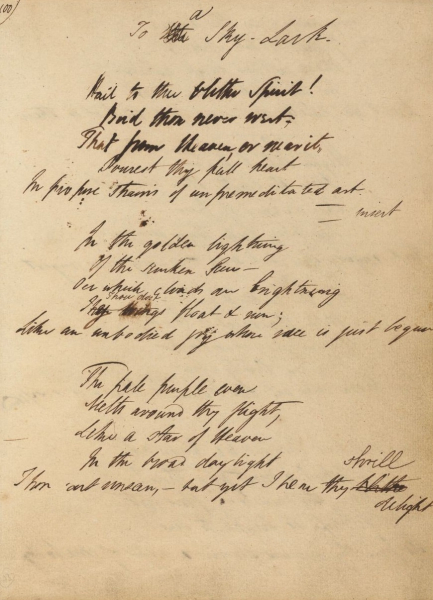 100)
To the a Sky-Lark.
Hail to thee blithe Spirit!
Bird thou never wert,
That from Heaven, or near it,
Pourest thy full heart
In profuse strains of unpremeditated art
= insert
In the golden lightning
Of the sunken Sun -
Oer which clouds are brightning
Thou dost float & run;
Like an unbodied joy whose race is just begun
The pale purple even
Melts around thy flight,
Like a star of Heaven
In the broad daylight
Thou art unseen, - but yet I hear thy blithe shrill
delight